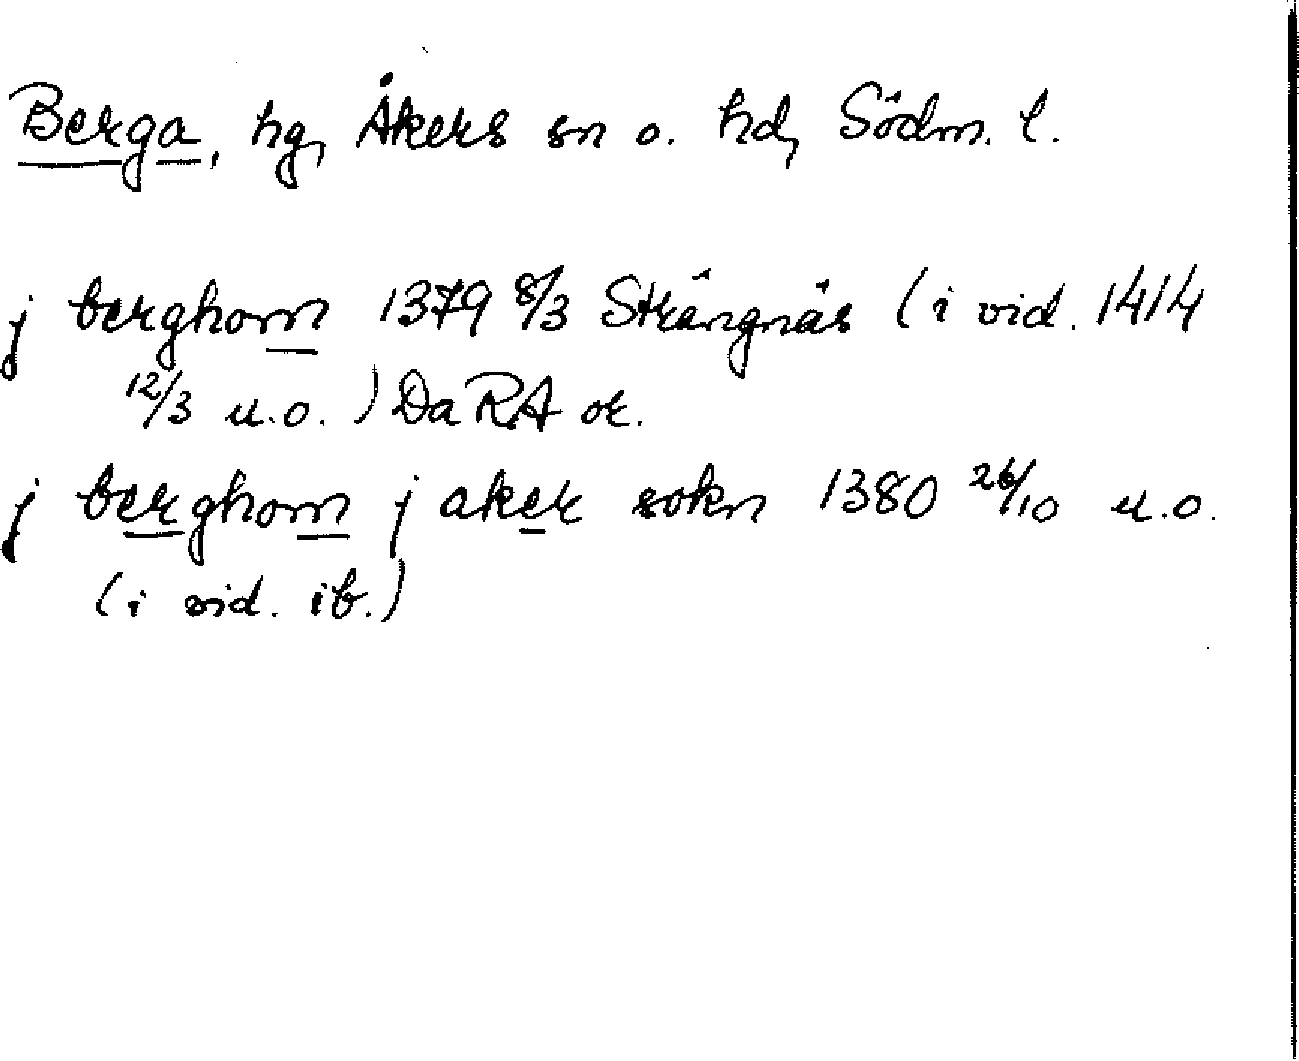 Berga, hg, Åkers sn o. hd, Södm. l.
j berghom 1379 8/3 Strängnäs (i vid. 1414
12/3 u.o.) Da RA or.
j berghom j aker sokn 1380 26/10 u.o.
(i vid. ib.)